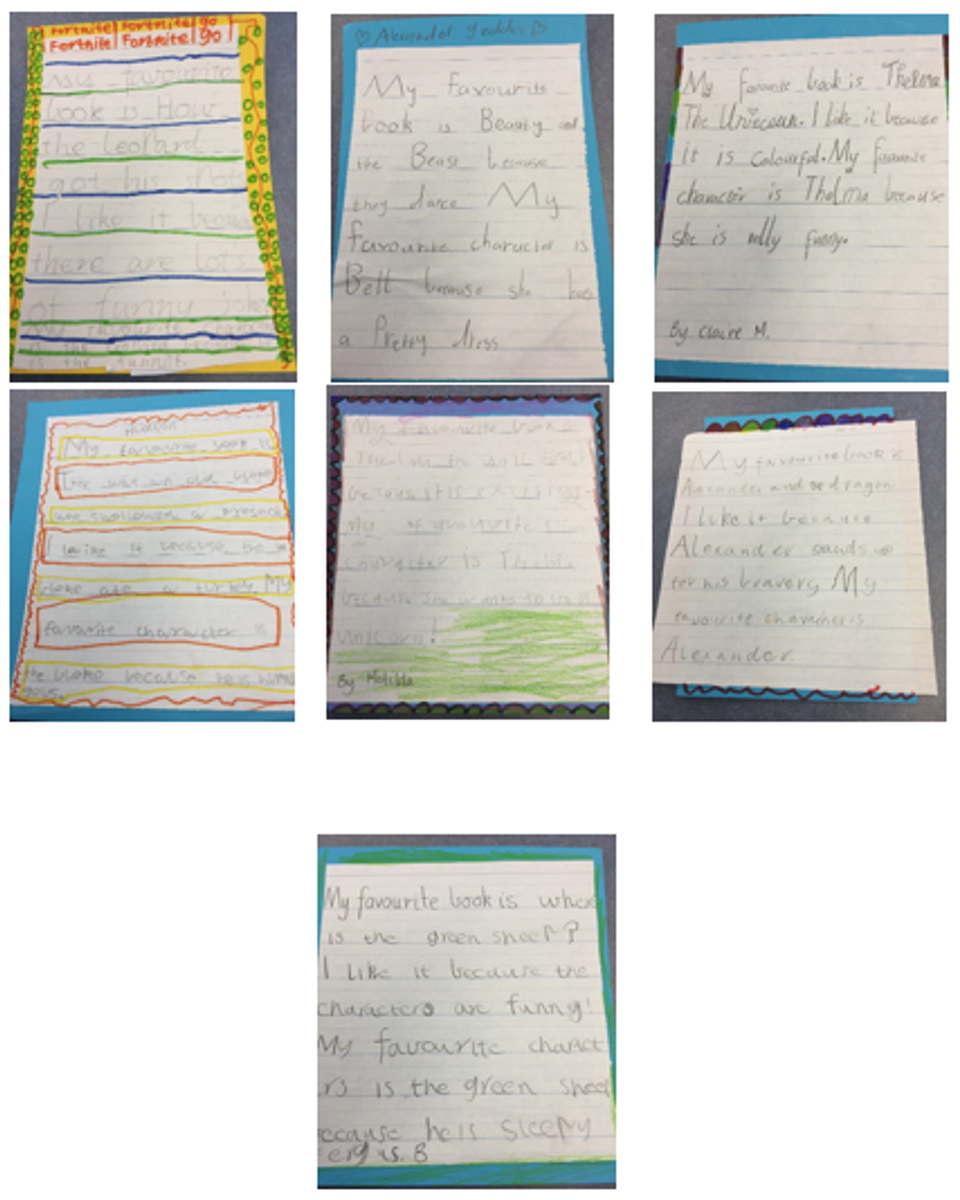 Fortnite Fortnite go
Fortnite Fortnite go
My favourite
book is How
the Leopard
got his spots
I like it becau
there are lots
of funny joke
My favourite
is the
is the funniest.
Alexandra Geddes
My favourite
book is Beauty and
the Beast because
they dance My
favourite character is
Bell because she has
a Pretty dress
My favourite book is Thelma
The Unicorn. I like it because
it is colourful. My favourite
character is Thelma because
she is really funny.
By Claire M.
My favourite book is
who swallowed a
I like it because the
bloke ate a turkey. My
favourite character is
the bloke because he is
My favourite book is
Thelma the unicorn
because it is exciting.
My favourite
character is Thelma
because she wants to be a
unicorn!
By Matilda
My favourite book is
Alexander and the dragon
I like it because
Alexander stands up
for his bravery My
favourite character is
Alexander.
My favourite book is where
is the green sheep?
I like it because the
characters are funny!
My favourite charact
rs is the green sheep
ecause he is sleepy
B